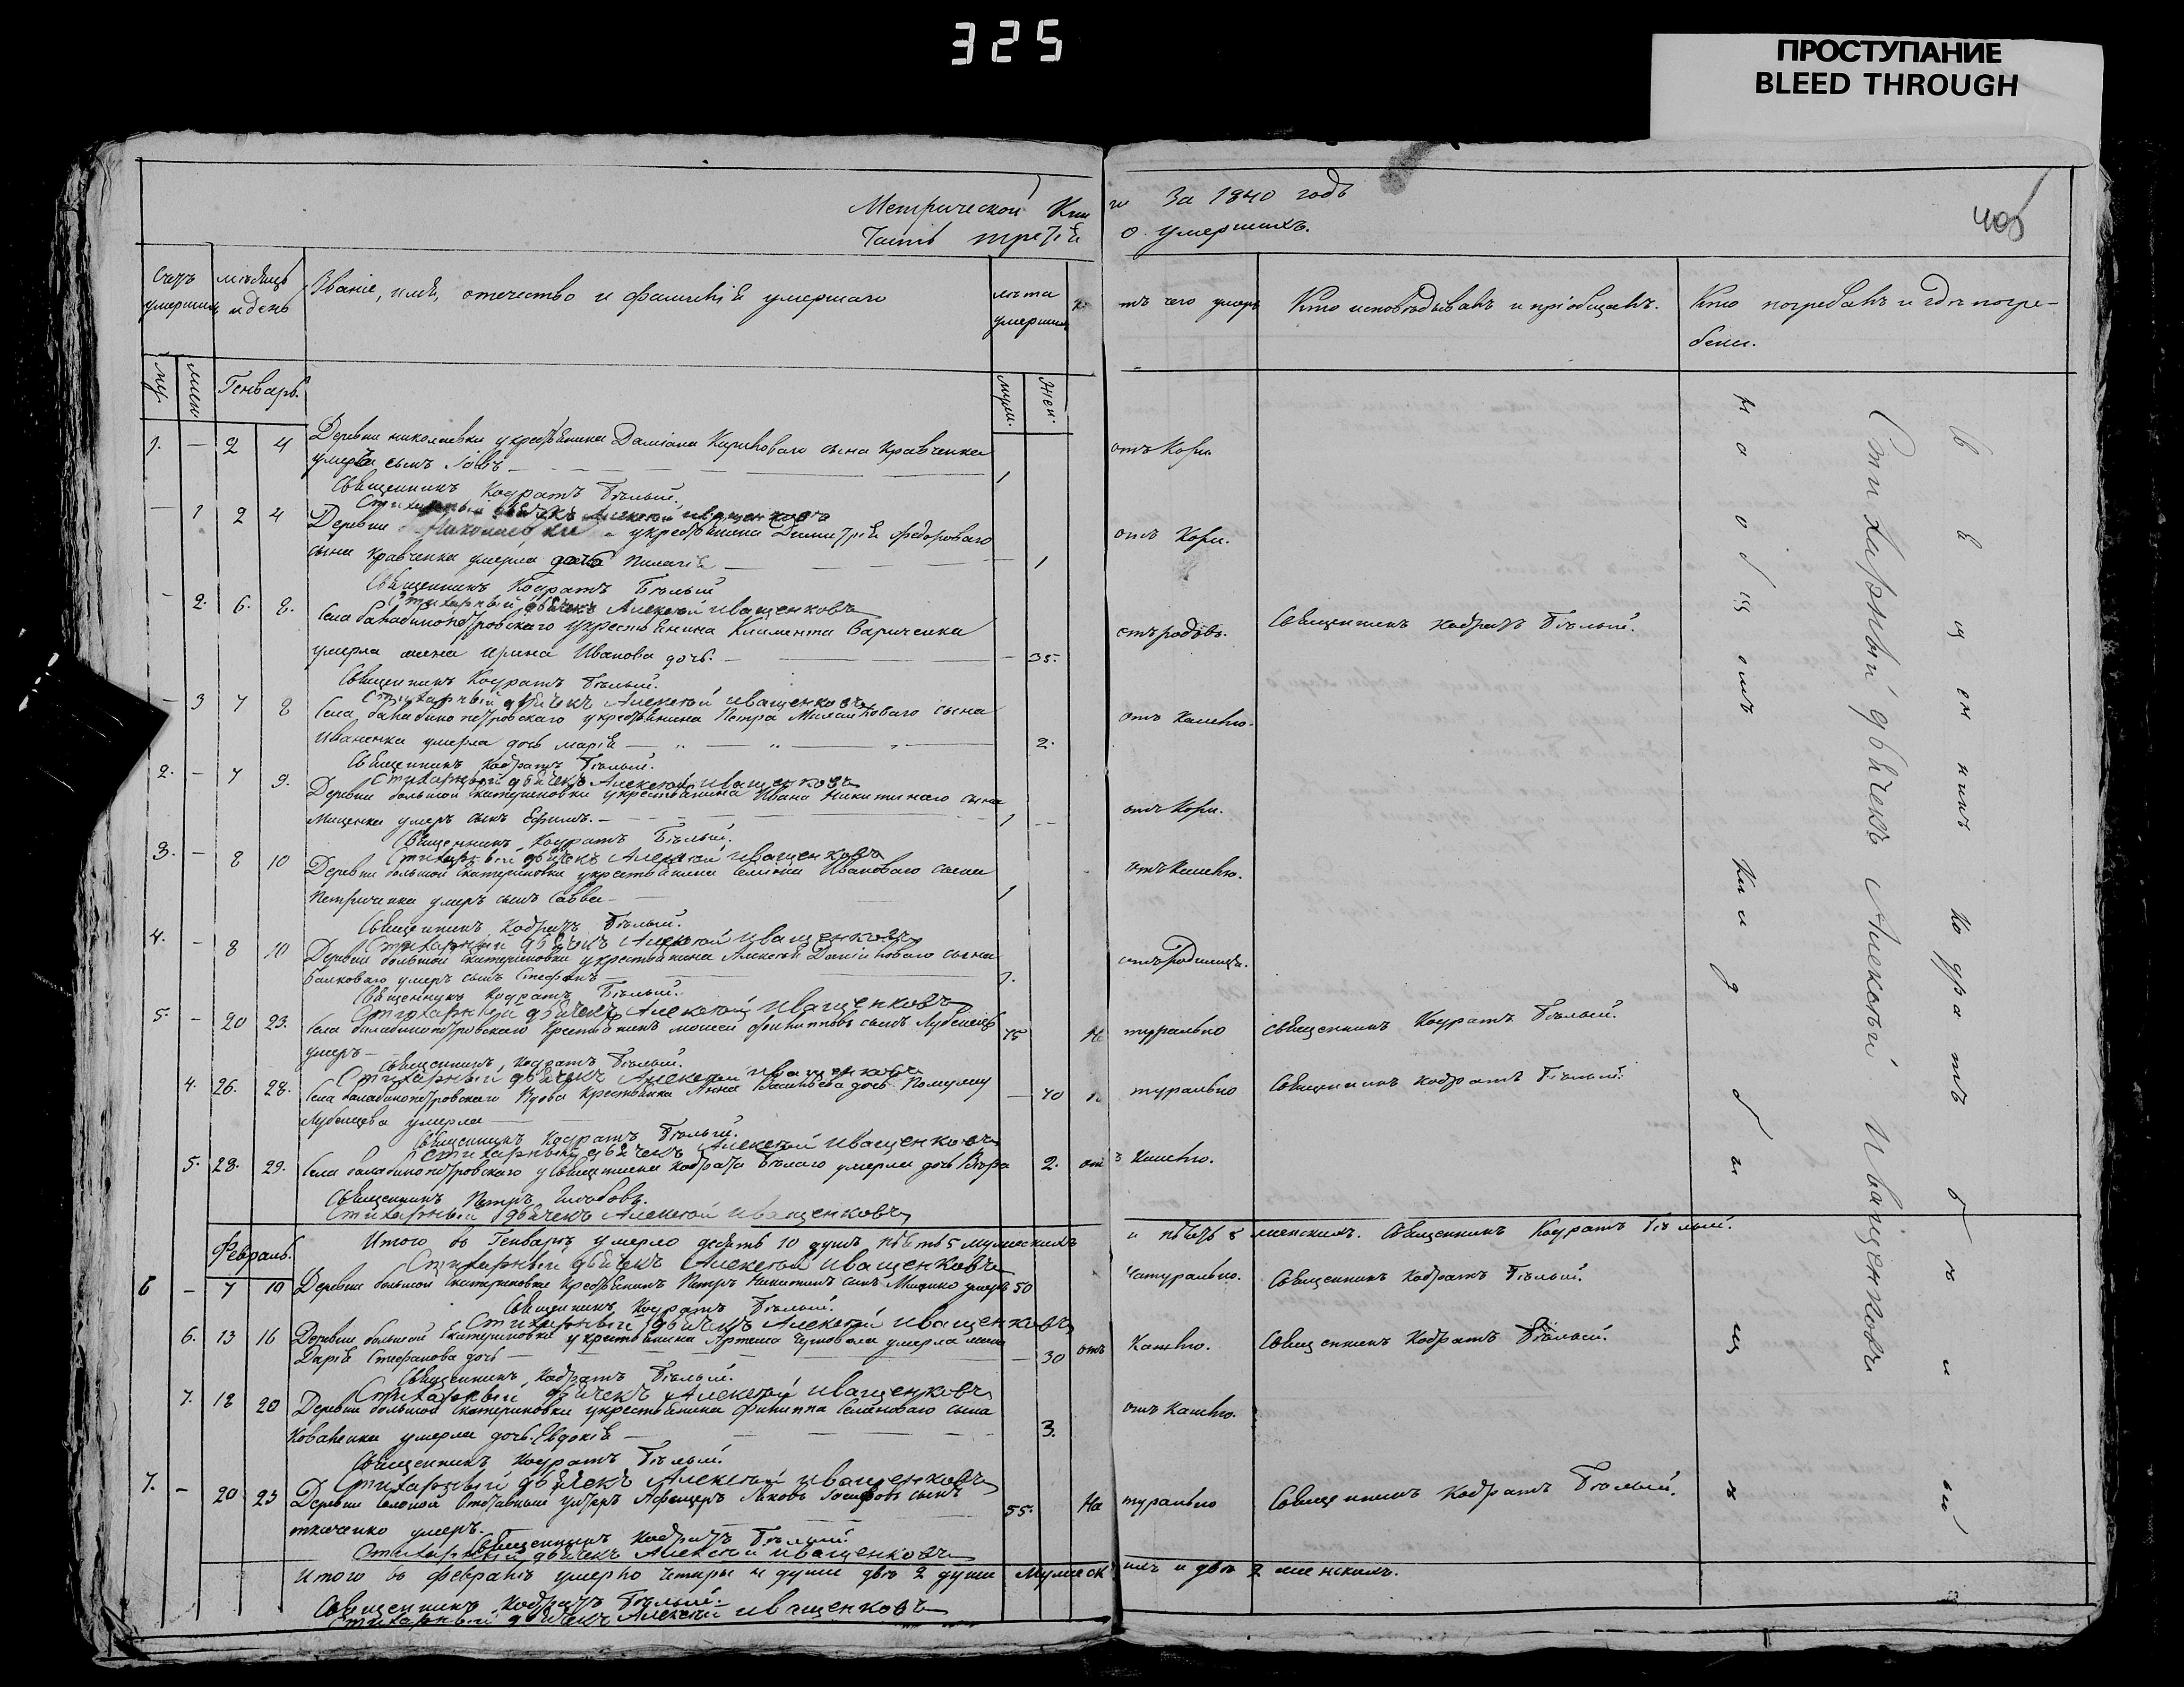 325
ПРОСТУПАНИЕ
BLEED THROUGH
Метрической Книги За 1840 годъ
Часть третія о умершихъ.
405
Счетъ умершихъ
мѣсяцъ и день
Званіе, имя, отечество и фамилія умершаго
лѣта умершихъ
отъ чего умеръ
Кто исповѣдывалъ и пріобщалъ.
Кто погребалъ и гдѣ погребены.
муж. жен. Генварь.
1. — 2 4 Деревни николаевки укрестьянина Даміана Кириловаго сына Кравченка
умеръ сынъ Іовъ — 1 отъ Кори.
Священникъ Кодратъ Бѣлый.
Стихарный дьячекъ Алексѣй иващенковъ
— 1 2 4 Деревни Николаевки укрестьянина Димитрія Федороваго
сына кравченка умерла дочь Пилагія — 1 отъ Кори.
Священникъ Кодратъ Бѣлый
Стихарный дьячекъ Алексѣй иващенковъ
— 2. 6. 8. Села балабинопетровскаго укрестьянина Климента Вариченка
умерла жена ирина Иванова дочь. — 35. отъ родовъ. Священникъ Кодратъ Бѣлый.
Священникъ Кодратъ Бѣлый.
Стихарный дьячекъ Алексѣй иващенковъ
— 3 7 8 Села балабинопетровскаго укрестьянина Петра сына
Иваненка умерла дочь марія — 2. отъ Кашлю.
Священникъ Кодратъ Бѣлый.
Стихарный дьячекъ Алексѣй иващенковъ
2. — 7 9. Деревни большой Екатериновки укрестьянина Ивана Никитинаго сына
Мищенка умеръ сынъ Ефимъ. — 1 отъ Кори.
Священникъ Кодратъ Бѣлый.
Стихарный дьячекъ Алексѣй иващенковъ
3. — 8 10 Деревни большой Екатериновки укрестьянина Ивановаго сына
Петриченка умеръ сынъ Савва — 1 отъ Кашлю.
Священникъ Кодратъ Бѣлый.
Стихарный дьячекъ Алексѣй иващенковъ
4. — 8 10 Деревни большой Екатериновки укрестьянина Алексѣя Даніиловаго сына
умеръ сынъ Стефанъ — 1. отъ родимца.
Священникъ Кодратъ Бѣлый.
Стихарный дьячекъ Алексѣй иващенковъ
5. — 20 23. Села балабинопетровскаго Крестьянинъ моисей филипповъ сынъ Лубенецъ
умеръ — 75 Натурально Священникъ Кодратъ Бѣлый.
Священникъ Кодратъ Бѣлый.
Стихарный дьячекъ Алексѣй иващенковъ
4. 26. 28. Села балабинопетровскаго Вдова Крестьянка Анна Васильева дочь
Лубенцева умерла — 70 Натурально Священникъ Кодратъ Бѣлый.
Священникъ Кодратъ Бѣлый.
Стихарный дьячекъ Алексѣй иващенковъ
5. 28. 29. Села балабинопетровскаго у Священника Кодрата Бѣлаго умерла дочь Вѣра 2. отъ Кашлю.
Священникъ Петръ
Стихарный дьячекъ Алексѣй иващенковъ
Итого въ Генварѣ умерло десять 10 душъ пять 5 мужескихъ и пять 5 женскихъ. Священникъ Кодратъ Бѣлый.
Стихарный дьячекъ Алексѣй иващенковъ
Февраль.
6 — 7 10 Деревни большой Екатериновки Крестьянинъ Петръ Никитинъ сынъ Мищенко умеръ 50 Натурально. Священникъ Кодратъ Бѣлый.
Священникъ Кодратъ Бѣлый.
Стихарный дьячекъ Алексѣй иващенковъ
6. 13 16 Деревни большой Екатериновки укрестьянина Артема умерла жена
Дарія Стефанова дочь — 30 отъ Кашлю. Священникъ Кодратъ Бѣлый.
Священникъ Кодратъ Бѣлый.
Стихарный дьячекъ Алексѣй иващенковъ
7. 18 20 Деревни большой Екатериновки укрестьянина Филиппа сына
Коваленка умерла дочь Евдокія — 3. отъ Кашлю.
Священникъ Кодратъ Бѣлый.
Стихарный дьячекъ Алексѣй иващенковъ
7. — 20 23 Деревни Отставный Яковъ Іосифовъ сынъ
ткаченко умеръ. 55. Натурально Священникъ Кодратъ Бѣлый.
Священникъ Кодратъ Бѣлый.
Стихарный дьячекъ Алексѣй иващенковъ
Итого въ февралѣ умерло четыре 4 души двѣ 2 души Мужескихъ и двѣ 2 женскихъ.
Священникъ Кодратъ Бѣлый.
Стихарный дьячекъ Алексѣй иващенковъ
На общемъ Кладбищѣ
Стихарный дьячекъ Алексѣй Иващенковъ
Священникъ Кодратъ Бѣлый